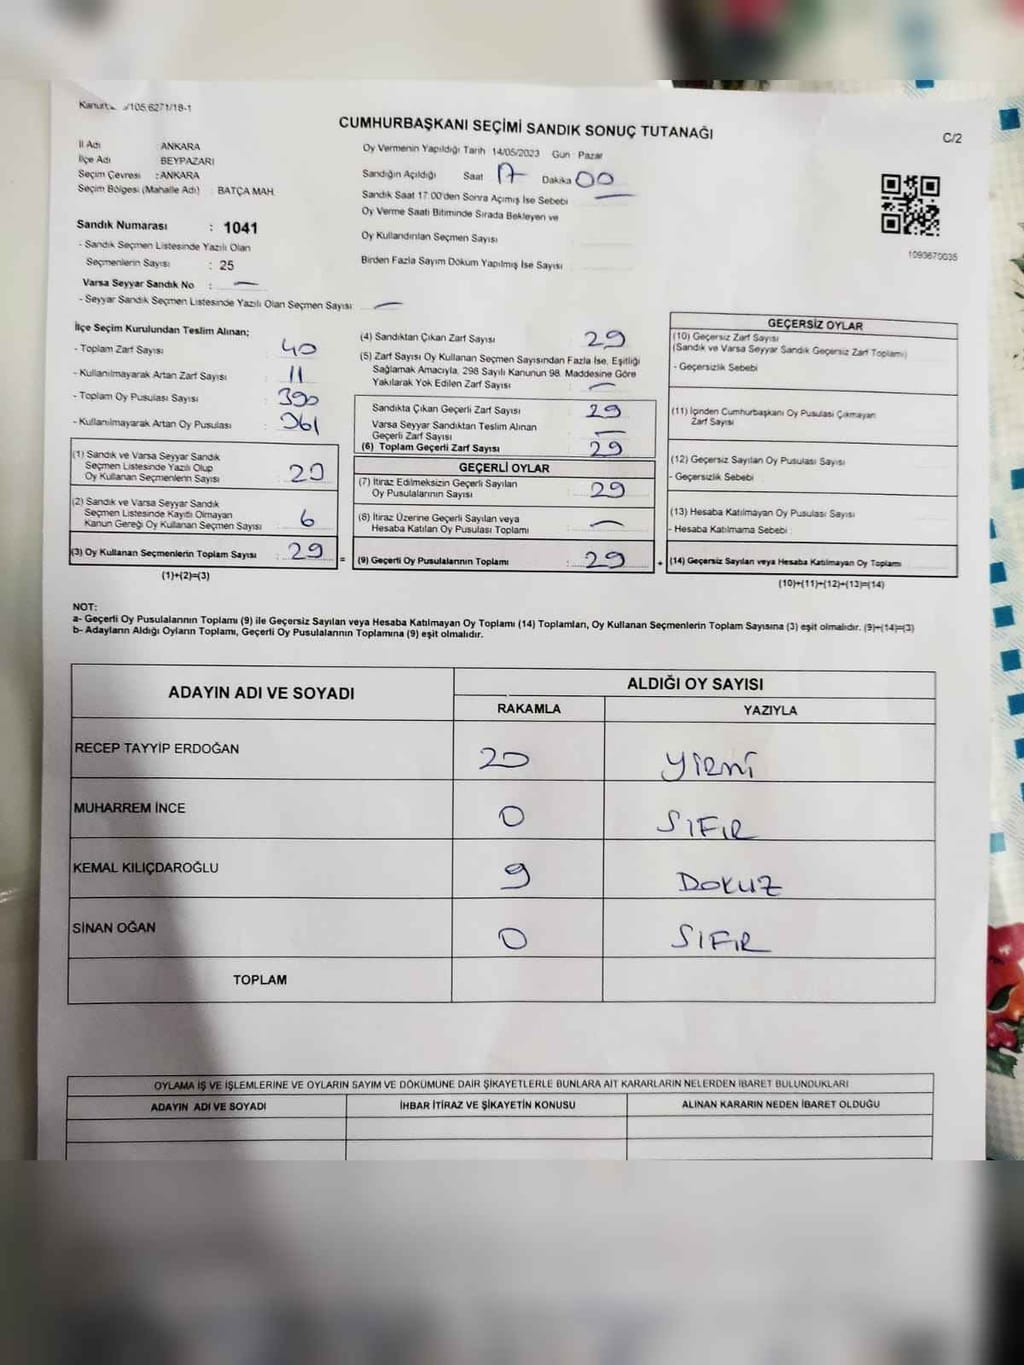 /105.6271/18-1
CUMHURBAŞKANI SEÇİMİ SANDIK SONUÇ TUTANAĞI
C/2
İl Adı ANKARA
İlçe Adı BEYPAZARI
Seçim Çevresi : ANKARA
Seçim Bölgesi (Mahalle Adı) : BATÇA MAH.
Oy Vermenin Yapıldığı Tarih 14/05/2023 Gün Pazar
Sandığın Açıldığı Saat 17 Dakika 00
Sandık Saat 17:00'den Sonra Açımış İse Sebebi —
Oy Verme Saati Bitiminde Sırada Bekleyen ve
Oy Kullandırılan Seçmen Sayısı
Birden Fazla Sayım Döküm Yapılmış İse Sayısı
1093670035
Sandık Numarası : 1041
- Sandık Seçmen Listesinde Yazılı Olan
Seçmenlerin Sayısı : 25
Varsa Seyyar Sandık No : —
- Seyyar Sandık Listesinde Yazılı Olan Seçmen Sayısı —
İlçe Seçim Kurulundan Teslim Alınan;
- Toplam Zarf Sayısı : 40
- Kullanılmayarak Artan Zarf Sayısı : 11
- Toplam Oy Pusulası Sayısı : 390
- Kullanılmayarak Artan Oy Pusulası : 361
(1) Sandık ve Varsa Seyyar Sandık
Seçmen Listesinde Yazılı Olup
Oy Kullanan Seçmenlerin Sayısı
(2) Sandık ve Varsa Seyyar Sandık
Seçmen Listesinde Kayıtlı Olmayan
Kanun Gereği Oy Kullanan Seçmen Sayısı 6
(3) Oy Kullanan Seçmenlerin Toplam Sayısı : 29 =
(1)+(2)=(3)
(4) Sandıktan Çıkan Zarf Sayısı 29
(5) Zarf Sayısı Oy Kullanan Seçmen Sayısından Fazla İse, Eşitliği
Sağlamak Amacıyla, 298 Sayılı Kanunun 98. Maddesine Göre
Yakılarak Yok Edilen Zarf Sayısı : —
Sandıkta Çıkan Geçerli Zarf Sayısı : 29
Varsa Seyyar Sandıktan Teslim Alınan
Geçerli Zarf Sayısı —
(6) Toplam Geçerli Zarf Sayısı : 29
GEÇERLİ OYLAR
(7) İtiraz Edilmeksizin Geçerli Sayılan
Oy Pusulalarının Sayısı : 29
(8) İtiraz Üzerine Geçerli Sayılan veya
Hesaba Katılan Oy Pusulası Toplamı : —
(9) Geçerli Oy Pusulalarının Toplamı : 29 +
GEÇERSİZ OYLAR
(10) Geçersiz Zarf Sayısı
(Sandık ve Varsa Seyyar Sandık Geçersiz Zarf Toplamı)
- Geçersizlik Sebebi
(11) İçinden Cumhurbaşkanı Oy Pusulası Çıkmayan
Zarf Sayısı
(12) Geçersiz Sayılan Oy Pusulası Sayısı
- Geçersizlik Sebebi
(13) Hesaba Katılmayan Oy Pusulası Sayısı
- Hesaba Katılmama Sebebi :
(14) Geçersiz Sayılan veya Hesaba Katılmayan Oy Toplamı
(10)+(11)+(12)+(13)=(14)
NOT:
a- Geçerli Oy Pusulalarının Toplamı (9) ile Geçersiz Sayılan veya Hesaba Katılmayan Oy Toplamı (14) Toplamları, Oy Kullanan Seçmenlerin Toplam Sayısına (3) eşit olmalıdır. (9)+(14)=(3)
b- Adayların Aldığı Oyların Toplamı, Geçerli Oy Pusulalarının Toplamına (9) eşit olmalıdır.
ADAYIN ADI VE SOYADI
ALDIĞI OY SAYISI
RAKAMLA YAZIYLA
RECEP TAYYİP ERDOĞAN 20 yirmi
MUHARREM İNCE 0 SIFIR
KEMAL KILIÇDAROĞLU 9 DOKUZ
SİNAN OĞAN 0 SIFIR
TOPLAM
OYLAMA İŞ VE İŞLEMLERİNE VE OYLARIN SAYIM VE DÖKÜMÜNE DAİR ŞİKAYETLERLE BUNLARA AİT KARARLARIN NELERDEN İBARET BULUNDUKLARI
ADAYIN ADI VE SOYADI İHBAR İTİRAZ VE ŞİKAYETİN KONUSU ALINAN KARARIN NEDEN İBARET OLDUĞU